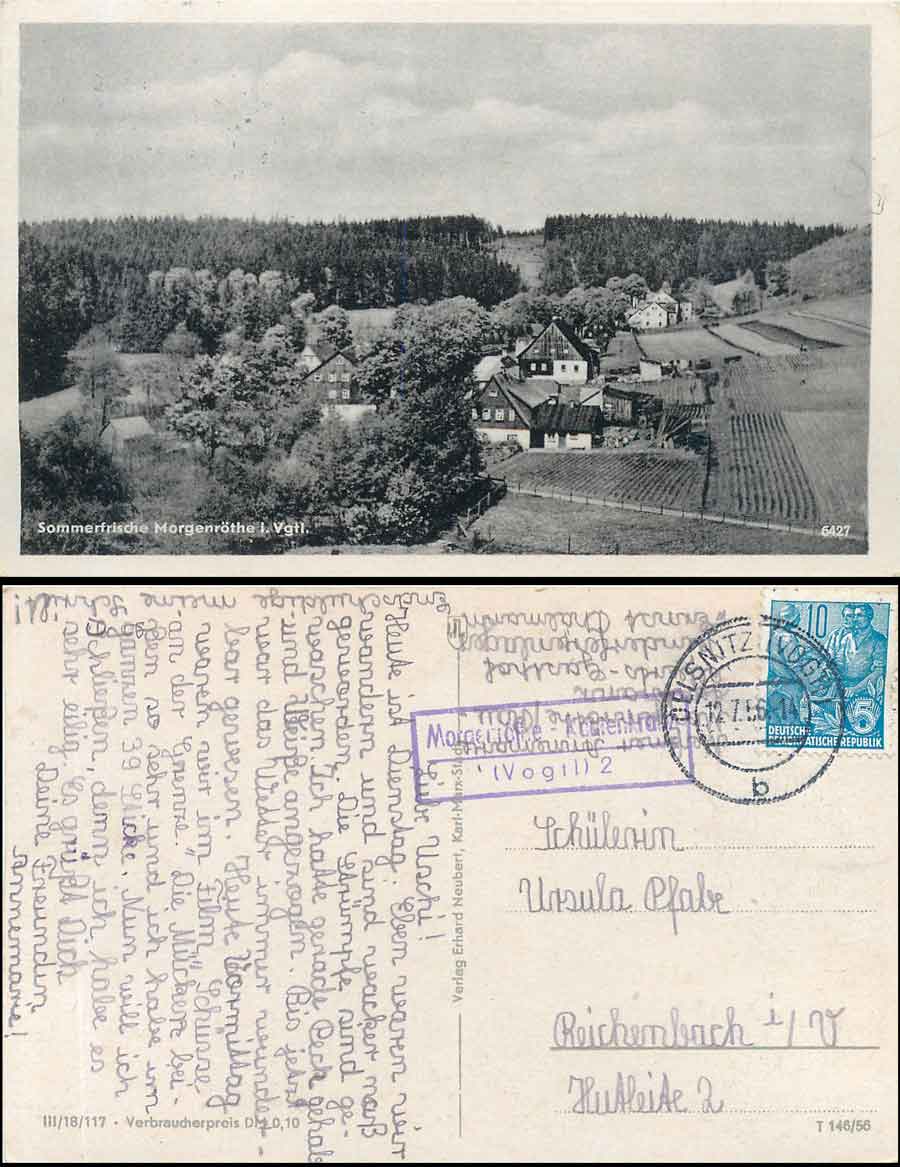 Sommerfrische Morgenröthe i. Vgtl.
6427
Liebe Uschi!
Heute ist Dienstag. Eben waren wir
wandern und sind wacker naß
geworden. Die Strümpfe sind ge-
waschen. Ich hatte gerade Pech gehabt
und
angezogen. Bis jetzt
war das Wetter immer wunder-
bar gewesen. Heute Vormittag
waren wir im Film „Schüsse
an der Grenze." Die Mücken bei-
ßen so sehr und ich habe im
ganzen 39 Stiche. Nun will ich
schließen, denn ich habe es
sehr eilig. Es grüßt Dich
Deine Freundin
Annemarie!
Entschuldige meine Schrift!
Kinderferienlager
"Ernst Thälmann"
Morgenröthe - Rautenkranz
(Vogtl) 2
OELSNITZ (VOGTL)
12.7.56-14
a
10
5
DEUTSCHE
DEMOKRATISCHE REPUBLIK
Schülerin
Ursula Pfabe
Reichenbach i/V
Hutleite 2
Verlag Erhard Neubert, Karl-Marx-Stadt
III/18/117 · Verbraucherpreis DM 0,10
T 146/56